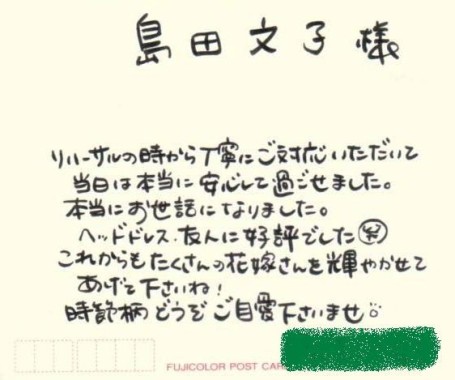 島田文子様
リハーサルの時から丁寧にご対応いただいて
当日は本当に安心して過ごせました。
本当にお世話になりました。
ヘッドドレス、友人に好評でした㊗
これからもたくさんの花嫁さんを輝やかせて
あげて下さいね!
時節柄どうぞご自愛下さいませ。
FUJICOLOR POST CAR